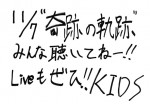 11/7 "奇跡の軌跡"
みんな聴いてねー!!
Liveもぜひ!! KIDS